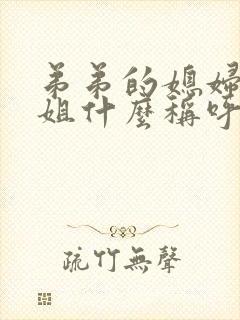 弟弟的媳婦
姐什麼稱呼
疏竹無聲